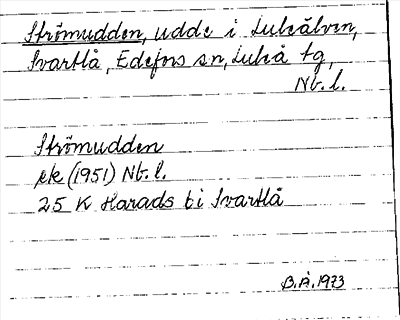 Strömudden, udde i Luleälven,
Svartlå, Edefors sn, Luleå tg,
Nb. l.
Strömudden
ek (1951) Nb. l.
25 K Harads bi Svartlå
B.Å. 1973